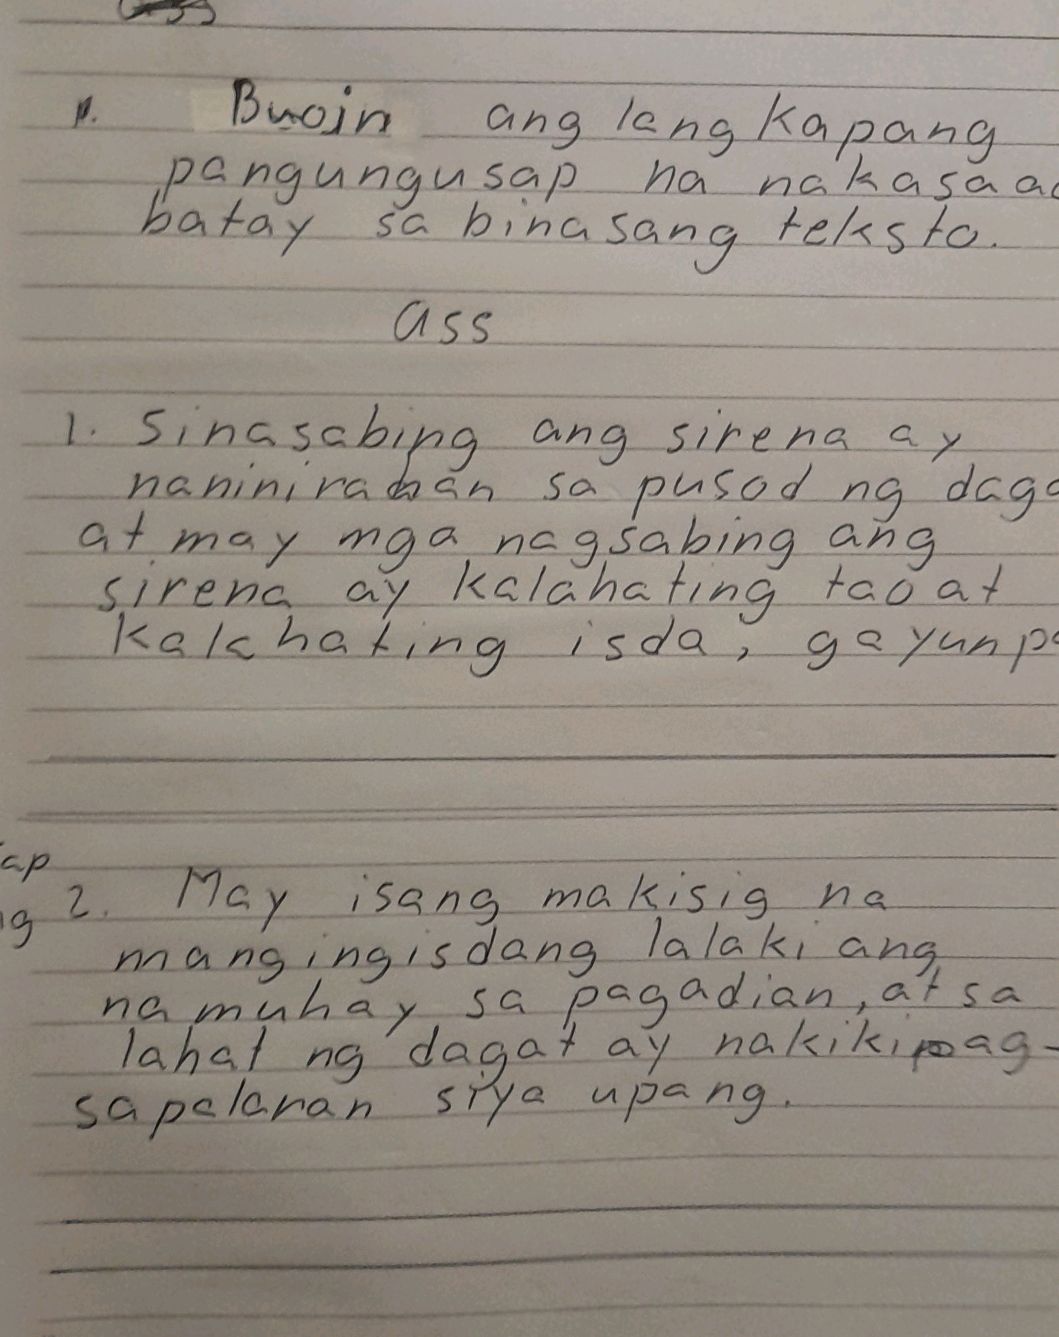 1. Buoin ang lang kapang
pangungusap na nakasaad
batay sa binasang teksto.
ass
1. Sinasabing ang sirena ay
naninirahan sa pusod ng daga
at may mga nagsabing ang
sirena ay kalahating tao at
kalahating isda, gayunpa
2. May isang makisig na
mangingisdang lalaki ang
namuhay sa pagadian, at sa
lahat ng dagat ay nakikipag-
sapalaran siya upang.